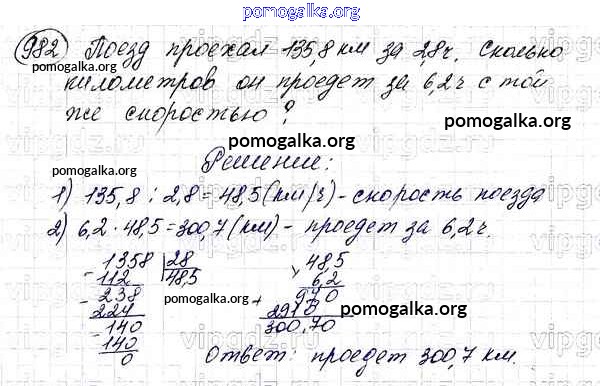 pomogalka.org
982 Поезд проехал 135,8 км за 2,8 ч. Сколько
pomogalka.org
километров он проедет за 6,2 ч с той
же скоростью?
pomogalka.org
pomogalka.org
Решение:
1) 135,8 : 2,8 = 48,5 (км/ч) - скорость поезда
2) 6,2 · 48,5 = 300,7 (км) - проедет за 6,2 ч.
1358 | 28
- 112 48,5
- 238
224
- 140
140
0
× 48,5
6,2
+ 970
2910
300,70
pomogalka.org
pomogalka.org
Ответ: проедет 300,7 км.
pomogalka.org